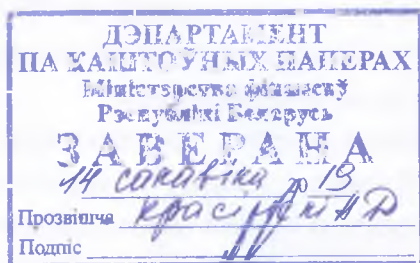 ДЭПАРТАМЕНТ
ПА КАШТОЎНЫХ ПАПЕРАХ
Міністэрства фінансаў
Рэспублікі Беларусь
ЗАВЕРАНА
14 сакавіка 19
Прозвішча
Подпіс